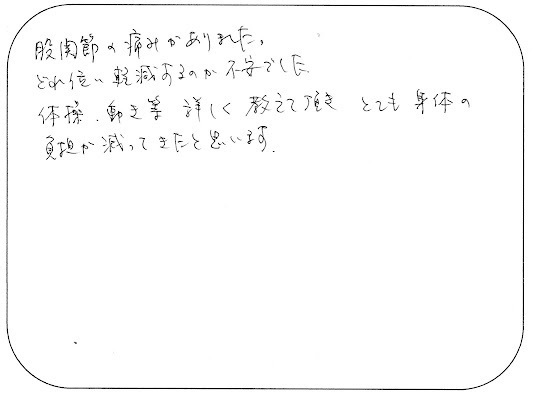 股関節の痛みがありました。
どれ位い軽減するのか不安でした
体操、動き等 詳しく教えて頂き とても身体の
負担が減ってきたと思います。